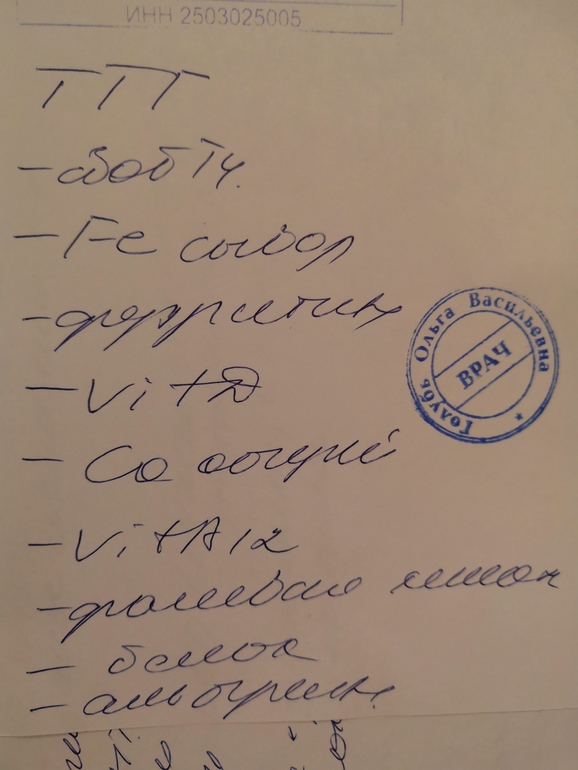 ИНН 2503025005
ТТГ
- своб Т4.
- Fe сывор
- ферритин
- Vit D
- Ca общий
- Vit B12
- фолиевая кислот
- белок
- альбумин
Голубь Ольга Васильевна *
ВРАЧ